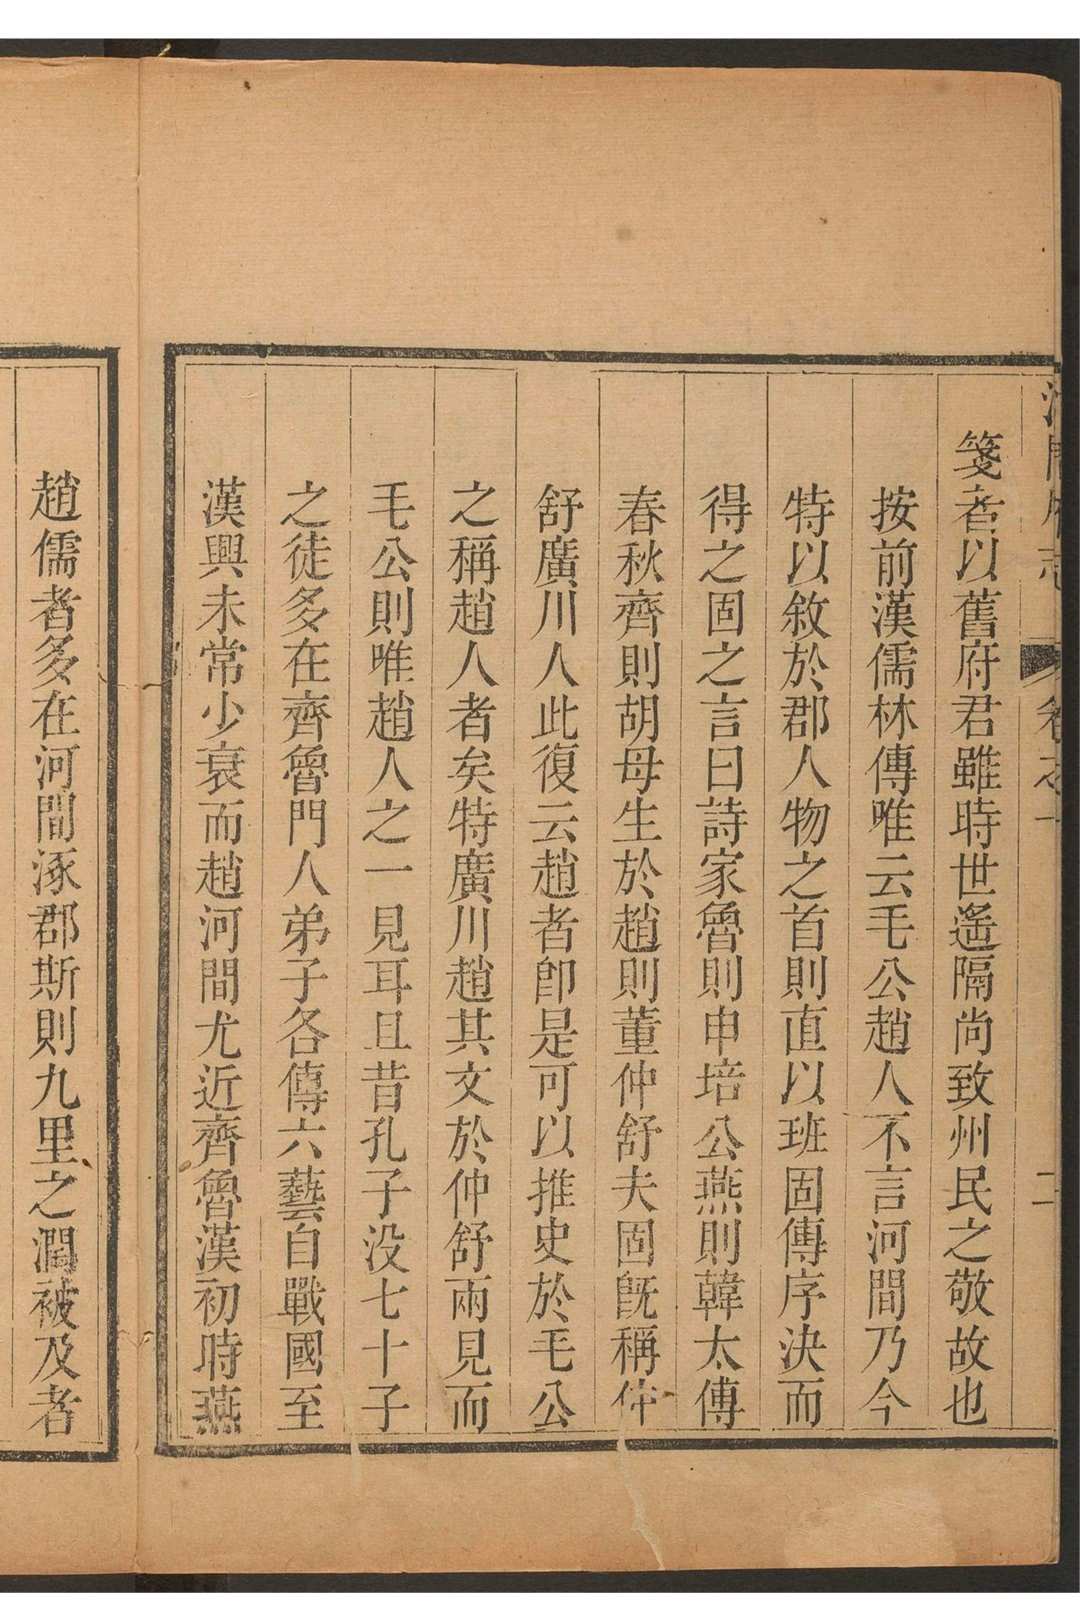 河間府志 卷之一 二
箋者以舊府君雖時世遙隔尚致州民之敬故也
按前漢儒林傳唯云毛公趙人不言河間乃今
特以敘於郡人物之首則直以班固傳序決而
得之固之言曰詩家魯則申培公燕則韓太傅
春秋齊則胡母生於趙則董仲舒夫固旣稱仲
舒廣川人此復云趙者卽是可以推史於毛公
之稱趙人者矣特廣川趙其文於仲舒兩見而
毛公則唯趙人之一見耳且昔孔子没七十子
之徒多在齊魯門人弟子各傳六藝自戰國至
漢興未常少衰而趙河間尤近齊魯漢初時燕
趙儒者多在河間涿郡斯則九里之潤被及者